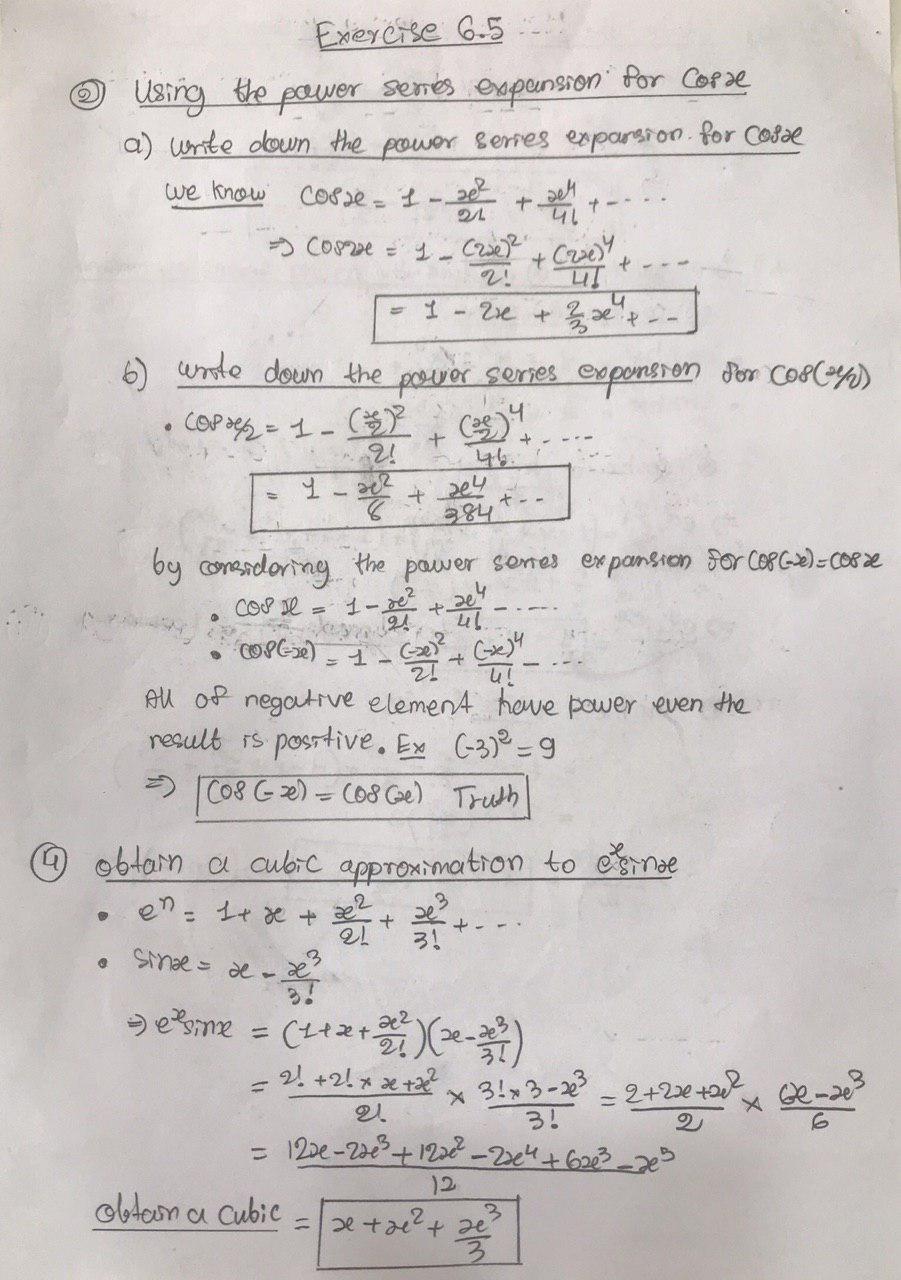 Exercise 6.5
② Using the power series expansion for Cosx
a) write down the power series expansion for Cos2x
we know Cosx = 1 - x²/2! + x⁴/4! + ....
⇒ Cos2x = 1 - (2x)²/2! + (2x)⁴/4! + ...
= 1 - 2x + 2/3 x⁴ + ..
b) write down the power series expansion for cos(x/2)
• cos x/2 = 1 - (x/2)²/2! + (x/2)⁴/4! + ....
= 1 - x²/8 + x⁴/384 + ..
by considering the power series expansion for cos(-x) = cosx
• cos x = 1 - x²/2! + x⁴/4! - ....
• cos(-x) = 1 - (-x)²/2! + (-x)⁴/4! - ...
All of negative element have power even the
result is positive. Ex (-3)² = 9
⇒ Cos(-x) = cos(x) Truth
④ obtain a cubic approximation to eˣsinx
• eⁿ = 1 + x + x²/2! + x³/3! + ...
• Sinx = x - x³/3!
⇒ eˣsinx = (1 + x + x²/2!)(x - x³/3!)
= 2! + 2! × x + x²/2! × 3! × 3 - x³/3! = 2 + 2x + x²/2 × 6x - x³/6
= 12x - 2x³ + 12x² - 2x⁴ + 6x³ - x⁵/12
obtain a cubic = x + x² + x³/3